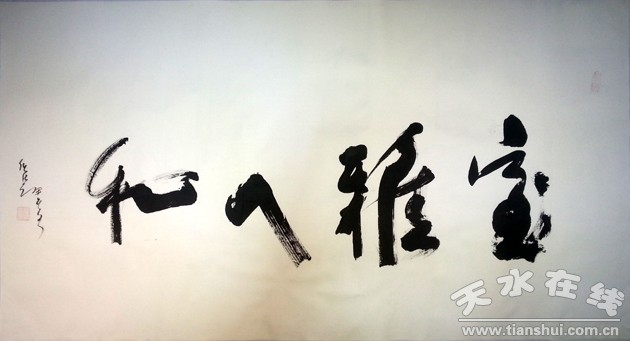 室雅人和
天水在线
www.tianshui.com.cn